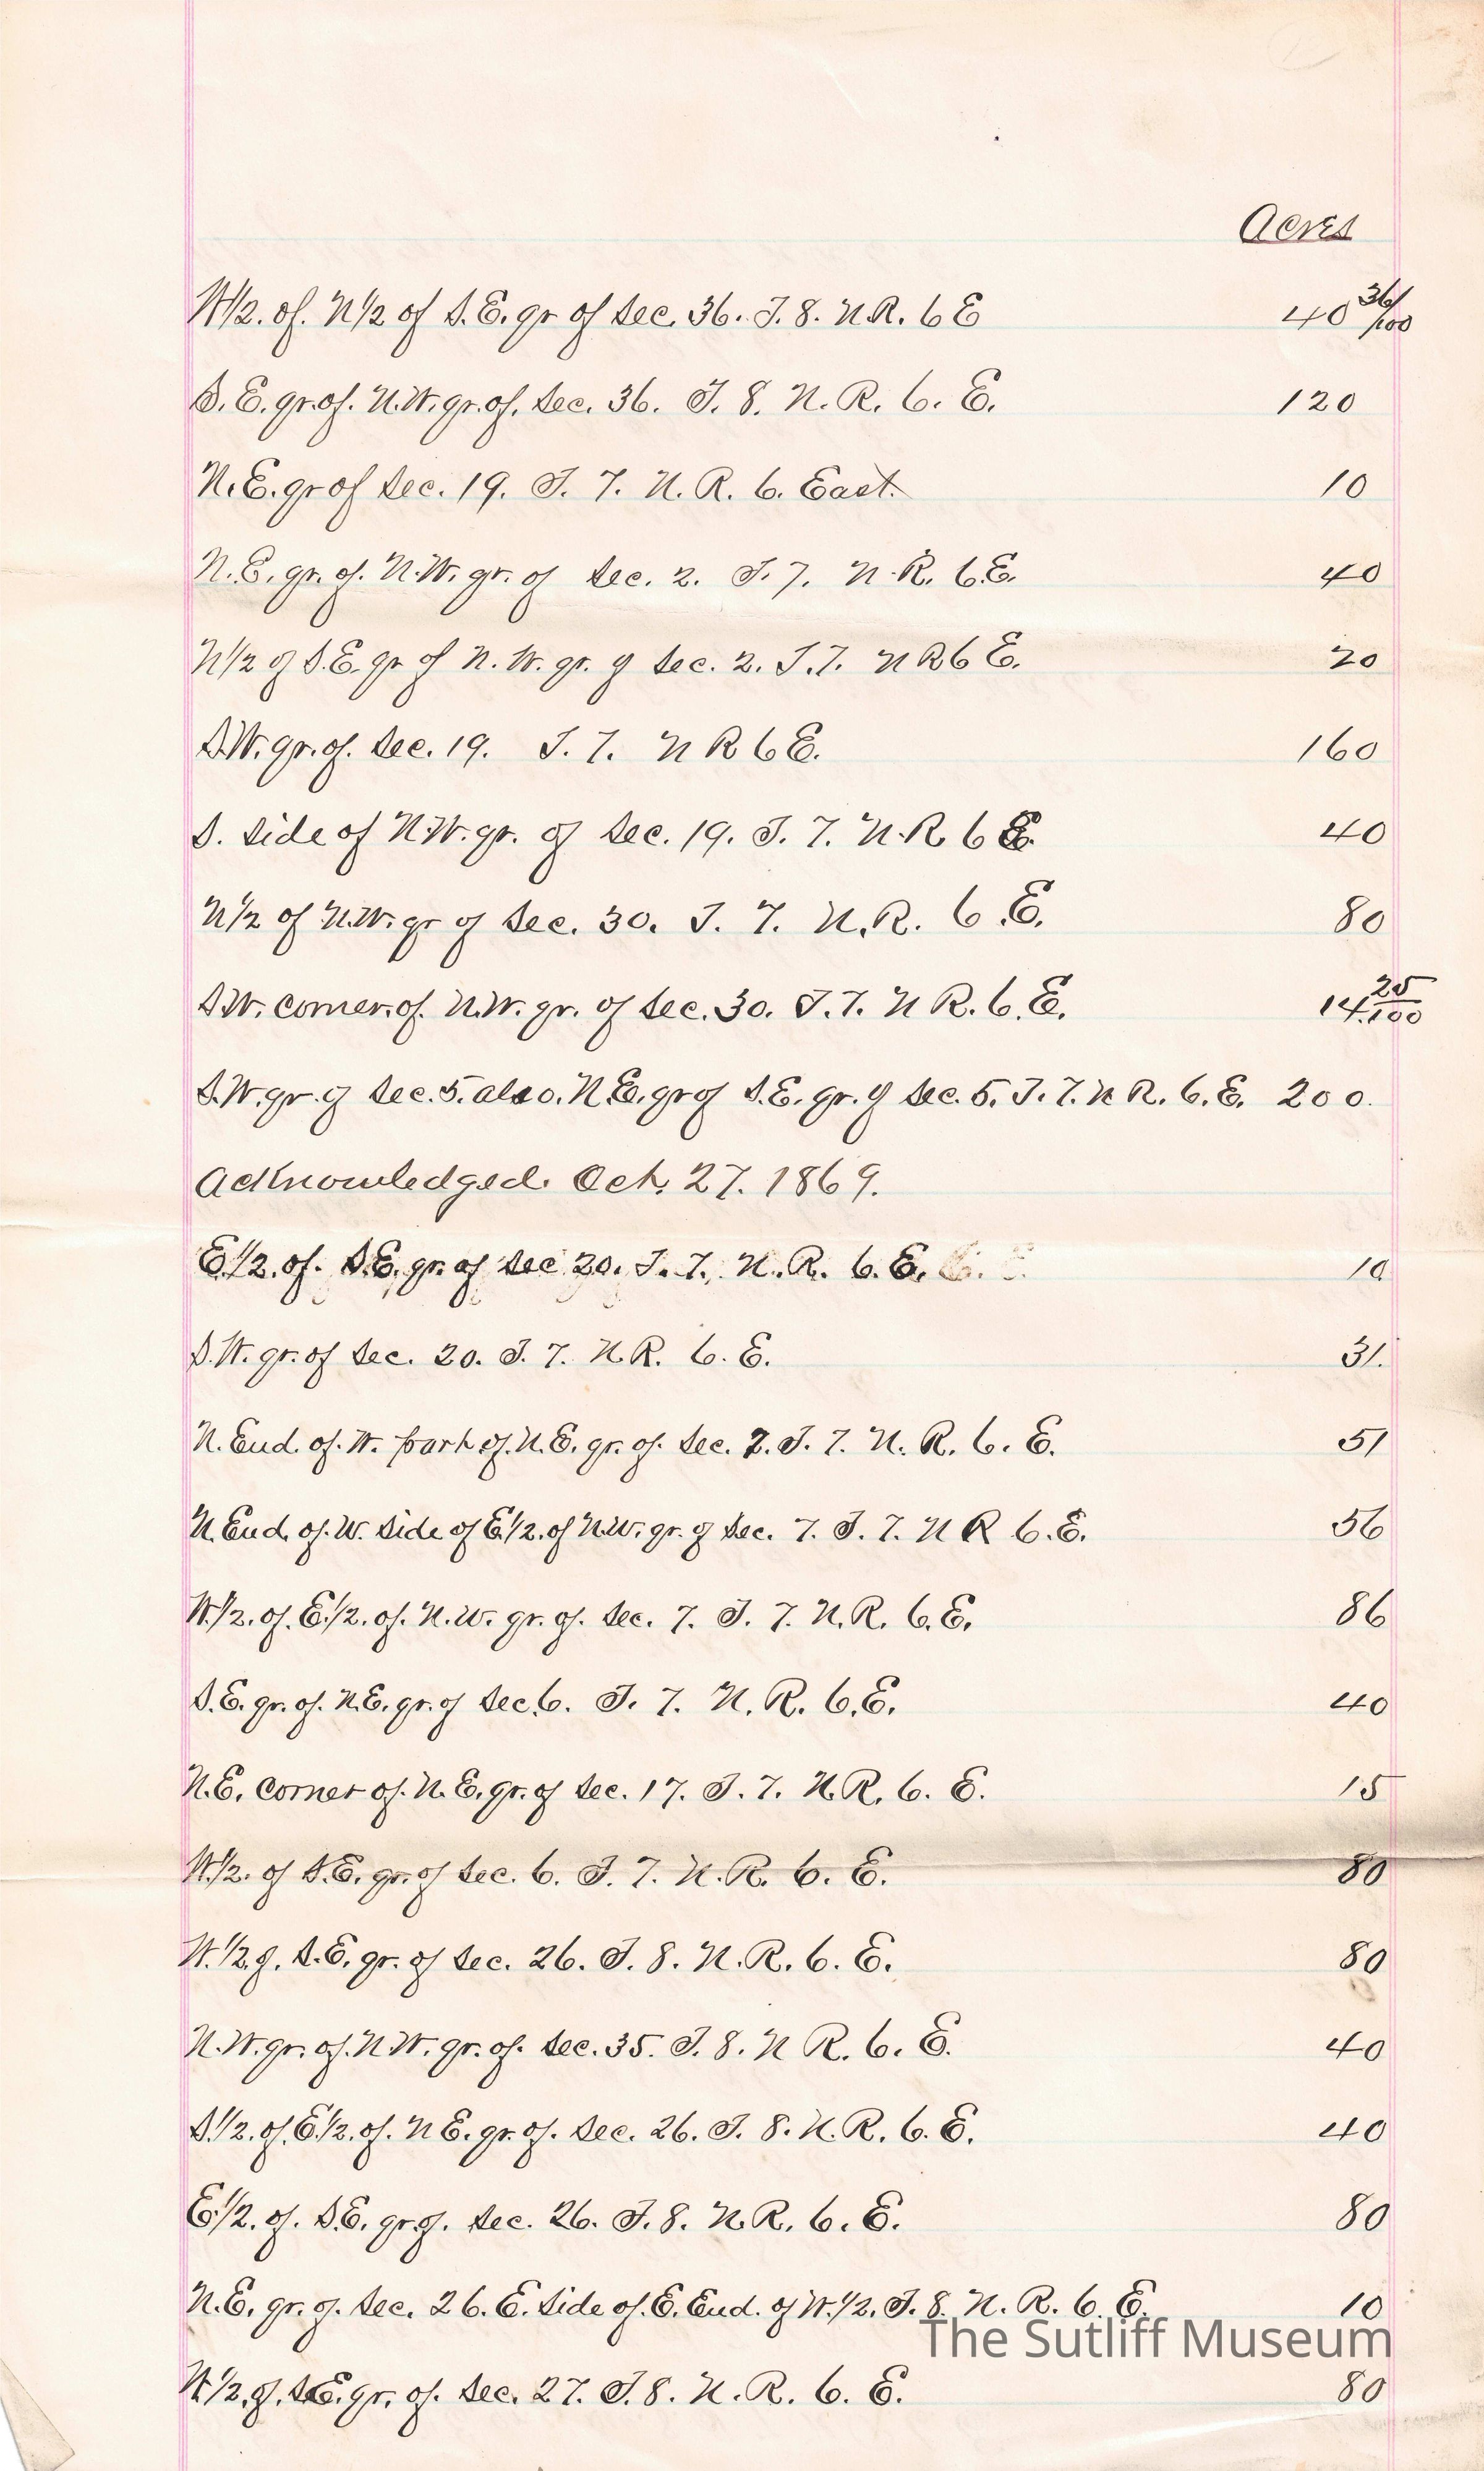 Acres
W1/2. of. N1/2 of S.E. qr of Sec. 36. T. 8. N.R. 6 E 40 36/100
S.E. qr. of. N.W. qr. of. Sec. 36. T. 8. N. R. 6. E. 120
N.E. qr of Sec. 19. T. 7. N. R. 6. East. 10
N.E. qr. of. N.W. qr. of Sec. 2. T. 7. N. R. 6.E. 40
N1/2 of S.E. qr of N.W. qr. of Sec. 2. T.7. N R 6 E. 20
S.W. qr. of. Sec. 19. T. 7. N R 6 E. 160
S. Side of N.W. qr. of Sec. 19. T. 7. N.R 6 E. 40
N1/2 of N.W. qr of Sec. 30. T. 7. N.R. 6 .E. 80
S.W. corner. of. N.W. qr. of Sec. 30. T.7. N R. 6.E. 14 25/100
S.W. qr. of Sec. 5. also. N.E. qr of S.E. qr. of Sec. 5. T. 7. N R. 6. E. 200.
Acknowledged. Oct. 27. 1869.
E.1/2. of. S.E. qr. of Sec 20. T. 7. N.R. 6. E. 10
S.W. qr. of Sec. 20. T. 7. N.R. 6. E. 31.
N. End. of. W. part. of. N.E. qr. of. Sec. 7. T. 7. N. R. 6. E. 51
N. End. of. W. Side of E.1/2. of N.W. qr. of Sec. 7. T. 7. N R 6. E. 56
W.1/2. of. E.1/2. of. N.W. qr. of. Sec. 7. T. 7. N.R. 6.E. 86
S.E. qr. of. N.E. qr. of Sec. 6. T. 7. N.R. 6.E. 40
N.E. corner of. N.E. qr. of Sec. 17. T. 7. N.R. 6. E. 15
W.1/2. of S.E. qr. of Sec. 6. T. 7. N.R. 6. E. 80
W.1/2. of. S.E. qr. of Sec. 26. T. 8. N.R. 6. E. 80
N.W. qr. of. N.W. qr. of. Sec. 35. T. 8. N R. 6. E. 40
S.1/2. of. E.1/2. of. N E. qr. of. Sec. 26. T. 8. N.R. 6. E. 40
E.1/2. of. S.E. qr. of. Sec. 26. T. 8. N.R. 6. E. 80
N.E. qr. of. Sec. 26. E. Side of. E. End. of W.1/2. T. 8. N. R. 6. E. 10
The Sutliff Museum
W.1/2. of. S.E. qr. of. Sec. 27. T. 8. N. R. 6. E. 80